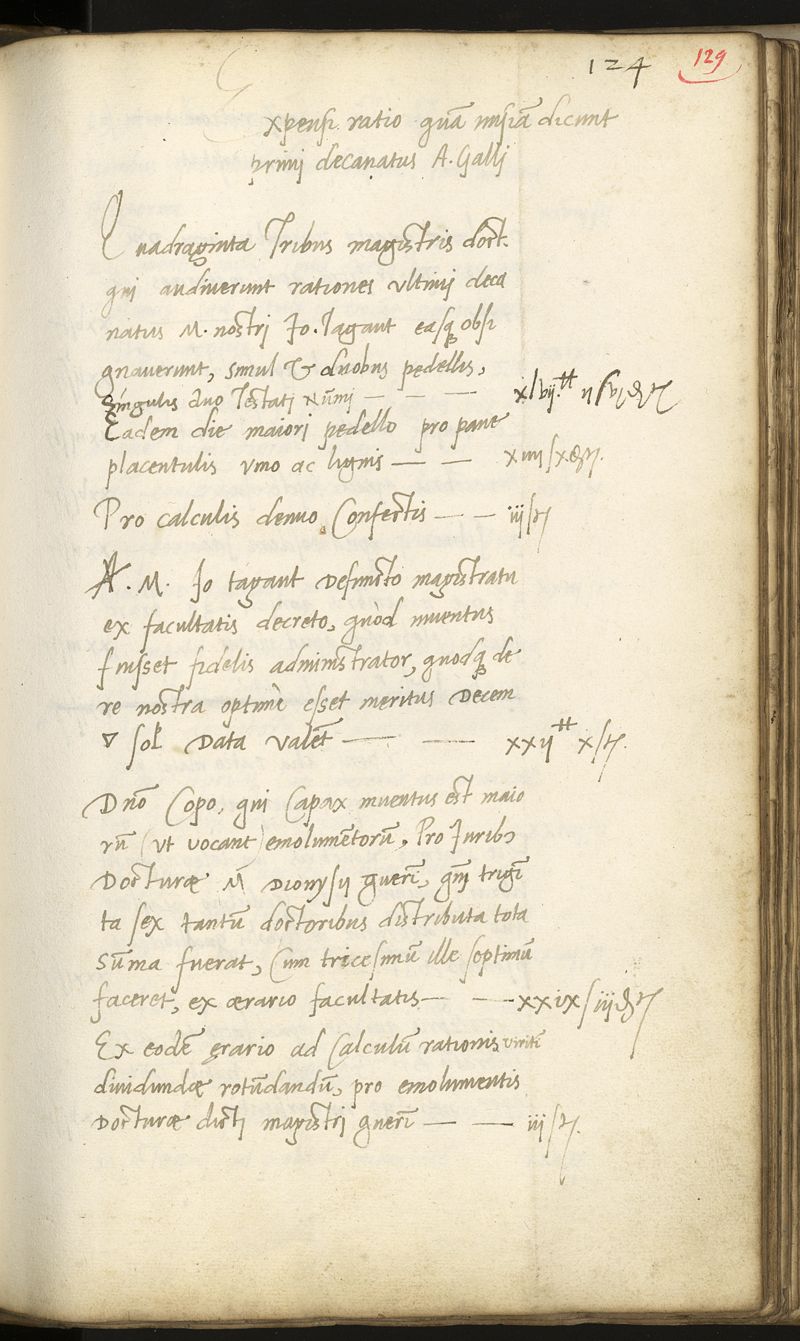 124 129
Expensi ratio quā misiā dicunt
primi decanatus A. Galli
Quadraginta Tribus magistris doct.
qui audiverunt rationes ultimi deca
natus M. nostri Jo. Tagaut easq; obsi
gnaverunt, simul & duobus pedellis,
Singulis duo Testati Nūmi — — — xlvij.tt ij ſ vj
Eadem die maiori pedello pro pane
placentulis vino ac lignis — — xiiij ſ x
Pro calculis denuo confectis — — iij ſ
A. M. Jo tagaut defuncto magistratu
ex facultatis decreto, quòd inventus
fuisset fidelis administrator, quodq; de
re nostra optimè esset meritus Decem
▽ sol Data valēt — — xxij tt x ſ
Dnō Copo, qui Capax inventus est maio
rū (ut vocant) emolumētorū, Pro Juribꝯ
Docturæ M̄ Dionysii guerī, qm̄ trigī
ta sex tantū doctoribus distributa tota
Sūma fuerat, Cum tricesimū ille septimū
faceret, ex ærario facultatis — — xxix ſ iij
Ex eodē ęrario ad Calculū rationis viritī
dividundæ rotūdandū, pro emolumentis
Docturæ dicti magistri guerī — — iij ſ